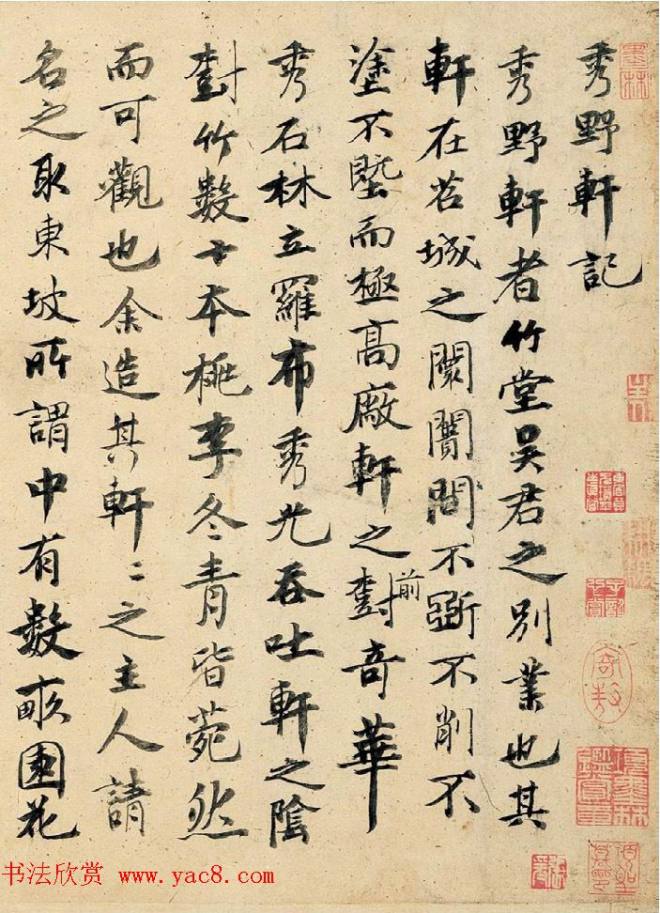 秀野軒記
秀野軒者竹堂吴君之别業也其
軒在苕城之闤闠間不斲不削不
塗不墍而極高厰軒之前對奇華
秀石林立羅布秀光吞吐軒之陰
對竹數十本桃李冬青皆菀然
而可觀也余造其軒〻之主人請
名之取東坡所謂中有數畝園花
书法欣赏 www.yac8.com